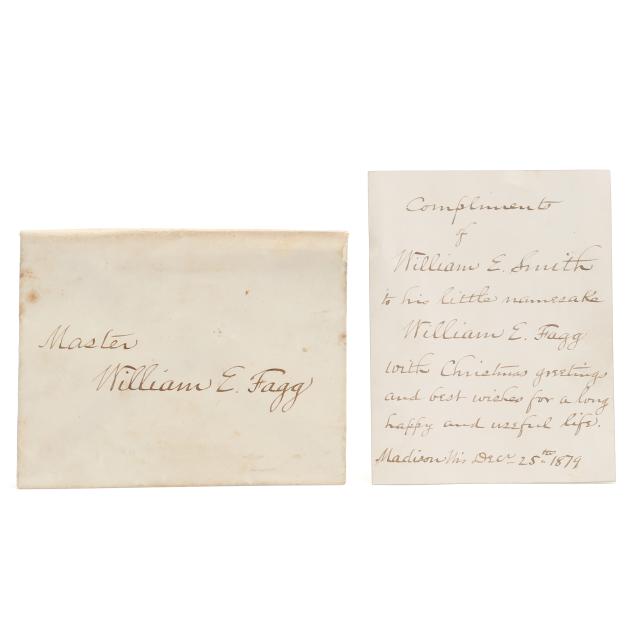 Master
William E. Fagg
Compliments
of
William E. Smith
to his little namesake
William E. Fagg
with Christmas greetings
and best wishes for a long
happy and useful life.
Madison Wis Decr 25th 1879